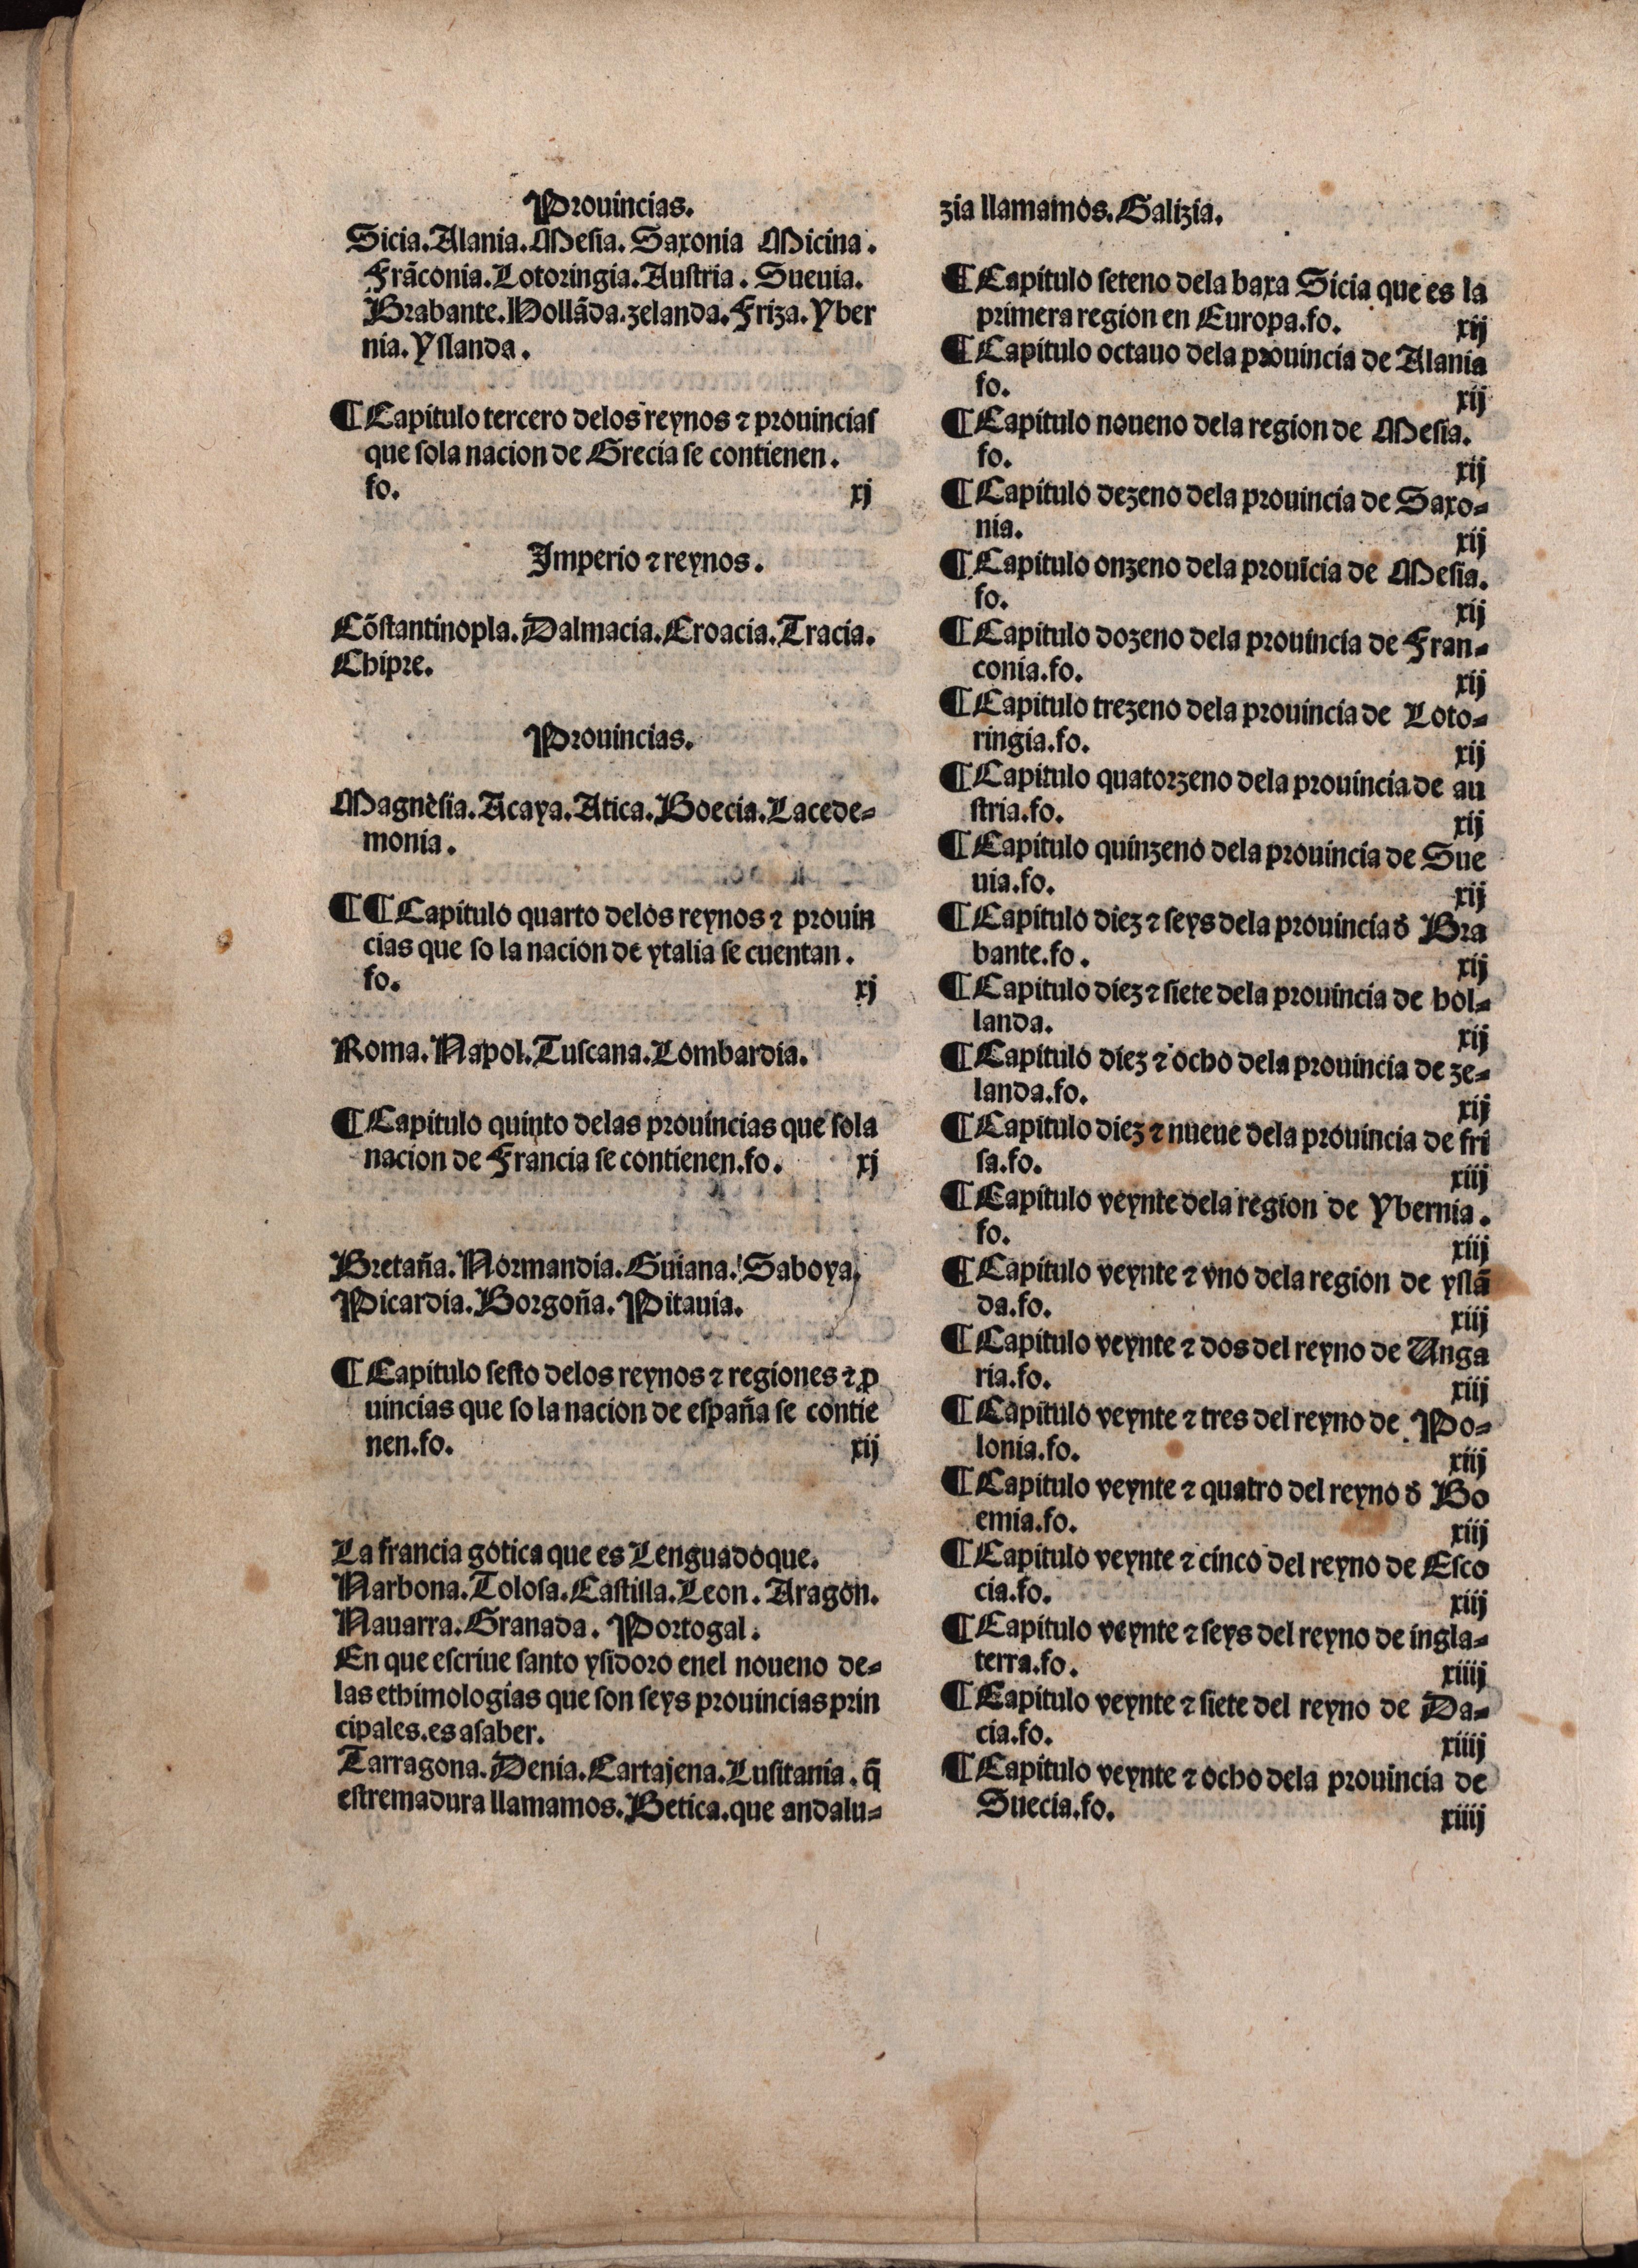 Prouincias.
Sicia.Alania.Mesia. Saxonia Micina.
Frãconia.Lotoringia.Austria. Sueuia.
Brabante.Hollãda.zelanda.Friza.Yber
nia.Yslanda.
¶Capitulo tercero delos reynos ⁊ prouincias
que sola nacion de Grecia se contienen.
fo. xj
Imperio ⁊ reynos.
Cõstantinopla.Dalmacia.Croacia.Tracia.
Chipre.
Prouincias.
Magnesia.Acaya.Atica.Boecia.Lacede-
monia.
¶¶Capitulo quarto delos reynos ⁊ prouin
cias que so la nacion de ytalia se cuentan.
fo. xj
Roma.Napol.Tuscana.Lombardia.
¶Capitulo quinto delas prouincias que sola
nacion de Francia se contienen.fo. xj
Bretaña.Normandia.Guiana.Saboya.
Picardia.Borgoña.Pitauia.
¶Capitulo sesto delos reynos ⁊ regiones ⁊ ꝓ
uincias que so la nacion de españa se contie
nen.fo. xij
La francia gotica que es Lenguadoque.
Narbona.Tolosa.Castilla.Leon.Aragon.
Nauarra.Granada. Portogal.
En que escriue santo ysidoro enel noueno de-
las ethimologias que son seys prouincias prin
cipales.es asaber.
Tarragona.Denia.Cartajena.Lusitania.q̃
estremadura llamamos.Betica.que andalu-
zia llamamos.Galizia.
¶Capitulo seteno dela baxa Sicia que es la
primera region en Europa.fo. xij
¶Capitulo octauo dela prouincia de Alania
fo. xij
¶Capitulo noueno dela region de Mesia.
fo. xij
¶Capitulo dezeno dela prouincia de Saxo-
nia. xij
¶Capitulo onzeno dela prouĩcia de Mesia.
fo. xij
¶Capitulo dozeno dela prouincia de Fran-
conia.fo. xij
¶Capitulo trezeno dela prouincia de Loto-
ringia.fo. xij
¶Capitulo quatorzeno dela prouincia de au
stria.fo. xij
¶Capitulo quinzeno dela prouincia de Sue
uia.fo. xij
¶Capitulo diez ⁊ seys dela prouincia õ Bra
bante.fo. xij
¶Capitulo diez ⁊ siete dela prouincia de hol-
landa. xij
¶Capitulo diez ⁊ ocho dela prouincia de ze-
landa.fo. xij
¶Capitulo diez ⁊ nueue dela prouincia de fri
sa.fo. xiij
¶Capitulo veynte dela region de Ybernia.
fo. xiij
¶Capitulo veynte ⁊ vno dela region de yslã
da.fo. xiij
¶Capitulo veynte ⁊ dos del reyno de Unga
ria.fo. xiij
¶Capitulo veynte ⁊ tres del reyno de Po-
lonia.fo. xiij
¶Capitulo veynte ⁊ quatro del reyno õ Bo
emia.fo. xiij
¶Capitulo veynte ⁊ cinco del reyno de Esco
cia.fo. xiij
¶Capitulo veynte ⁊ seys del reyno de ingla-
terra.fo. xiiij
¶Capitulo veynte ⁊ siete del reyno de Da-
cia.fo. xiiij
¶Capitulo veynte ⁊ ocho dela prouincia de
Suecia.fo. xiiij